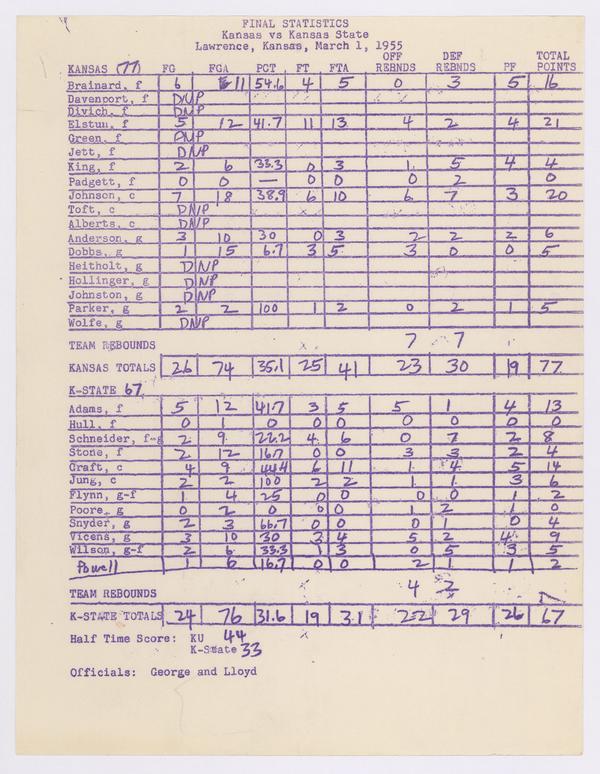 FINAL STATISTICS
Kansas vs Kansas State
Lawrence, Kansas, March 1, 1955
OFF DEF TOTAL
KANSAS (77) FG FGA PCT FT FTA REBNDS REBNDS PF POINTS
Brainard, f 6 11 54.6 4 5 0 3 5 16
Davenport, f DNP
Divich, f DNP
Elstun, f 5 12 41.7 11 13 4 2 4 21
Green, f DNP
Jett, f DNP
King, f 2 6 33.3 0 3 1 5 4 4
Padgett, f 0 0 — 0 0 0 2 0
Johnson, c 7 18 38.9 6 10 6 7 3 20
Toft, c DNP
Alberts, c DNP
Anderson, g 3 10 30 0 3 2 2 2 6
Dobbs, g 1 15 6.7 3 5 3 0 0 5
Heitholt, g DNP
Hollinger, g DNP
Johnston, g DNP
Parker, g 2 2 100 1 2 0 2 1 5
Wolfe, g DNP
TEAM REBOUNDS 7 7
KANSAS TOTALS 26 74 35.1 25 41 23 30 19 77
K-STATE 67
Adams, f 5 12 41.7 3 5 5 1 4 13
Hull, f 0 1 0 0 0 0 0 0 0
Schneider, f-g 2 9 22.2 4 6 0 7 2 8
Stone, f 2 12 16.7 0 0 3 3 2 4
Craft, c 4 9 44.4 6 11 1 4 5 14
Jung, c 2 2 100 2 2 1 1 3 6
Flynn, g-f 1 4 25 0 0 0 0 1 2
Poore, g 0 2 0 0 0 1 2 1 0
Snyder, g 2 3 66.7 0 0 0 1 0 4
Vicens, g 3 10 30 3 4 5 2 4 9
Wilson, g-f 2 6 33.3 1 3 0 5 3 5
Powell 1 6 16.7 0 0 2 1 1 2
TEAM REBOUNDS 4 2
K-STATE TOTALS 24 76 31.6 19 31 22 29 26 67
Half Time Score: KU 44
K-State 33
Officials: George and Lloyd